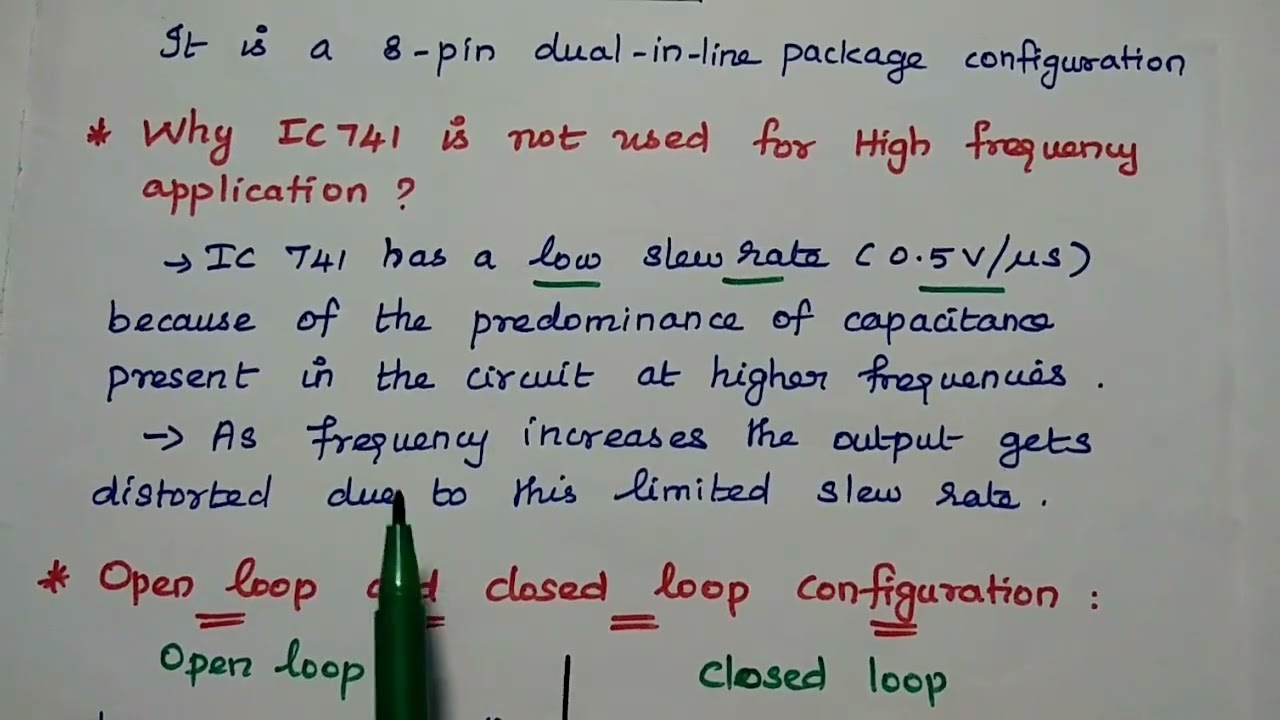 It is a 8-pin dual-in-line package configuration
* Why IC 741 is not used for High frequency
application ?
→ IC 741 has a low slew rate (0.5V/μs)
because of the predominance of capacitance
present in the circuit at higher frequencies .
→ As frequency increases the output gets
distorted due to this limited slew rate .
* Open loop closed loop configuration :
Open loop Closed loop